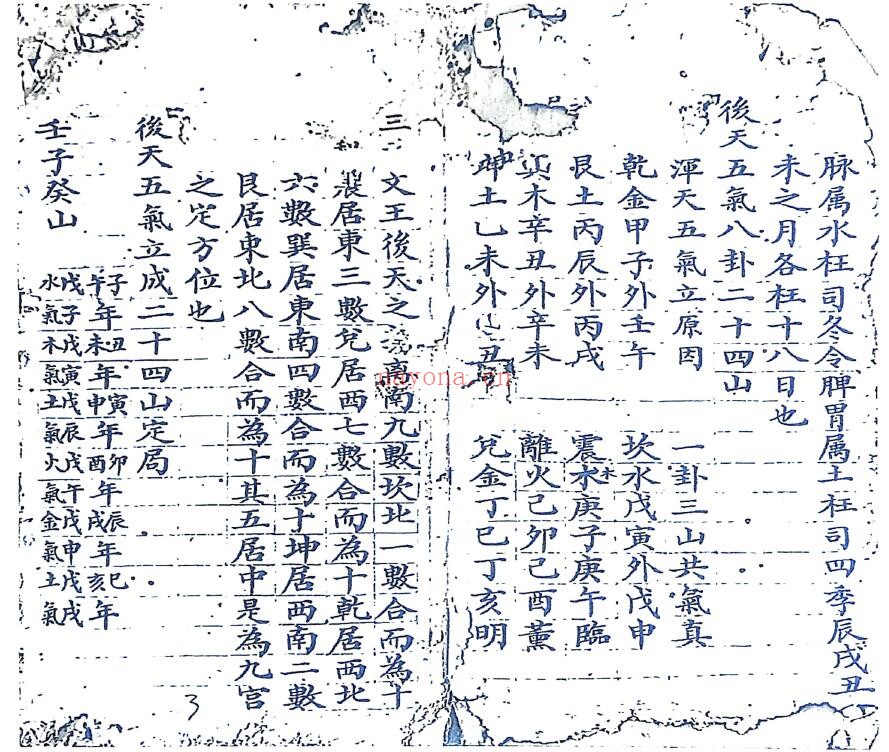 脉属水枉司冬令脾胃属土枉司四季辰戌丑
未之月各枉十八日也
後天五氣八卦二十四山
渾天五氣立原因 一卦三山共氣真
乾金甲子外壬午 坎水戊寅外戊申
艮土丙辰外丙戌 震木庚子庚午臨
巽木辛丑外辛未 離火己卯己酉薰
坤土乙未外丑 兌金丁巳丁亥明
三 文王後天之 南九數坎北一數合而為十
震居東三數兌居西七數合而為十乾居西北
六數巽居東南四數合而為十坤居西南二數
艮居東北八數合而為十其五居中是為九宮
之定方位也
後天五氣立成二十四山定局
壬子癸山
子午年 丑未年 寅申年 卯酉年 辰戌年 巳亥年
戊子水氣 戊寅木氣 戊辰土氣 戊午火氣 戊申金氣 戊戌土氣
3